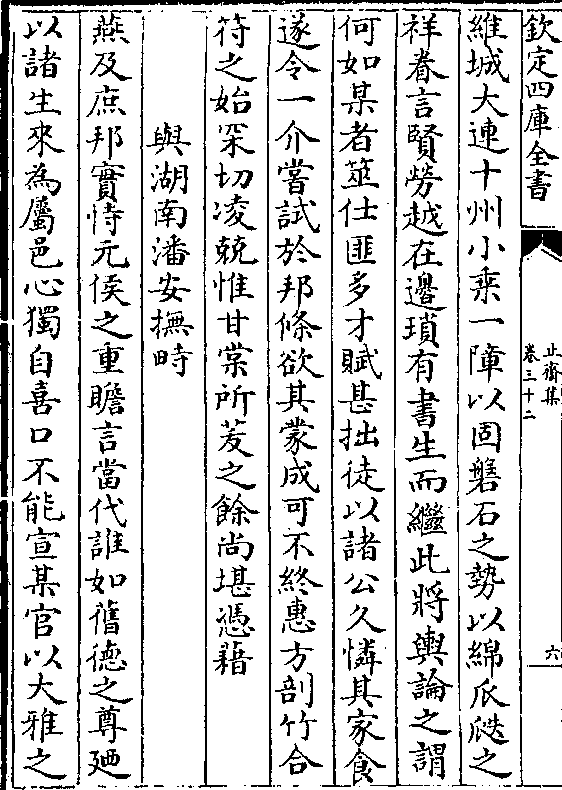 欽定四庫全書
止齋集
卷三十二
六
維城大連十州小乘一障以固磐石之勢以綿瓜瓞之
祥眷言賢勞越在邊瑣有書生而繼此將輿論之謂
何如某者筮仕匪多才賦甚拙徒以諸公久憐其家食
遂令一介嘗試於邦條欲其蒙成可不終惠方剖竹合
符之始深切凌兢惟甘棠所茇之餘尚堪憑藉
與湖南潘安撫時
燕及庶邦實恃元侯之重瞻言當代誰如舊德之尊廼
以諸生來為屬邑心獨自喜口不能宣某官以大雅之